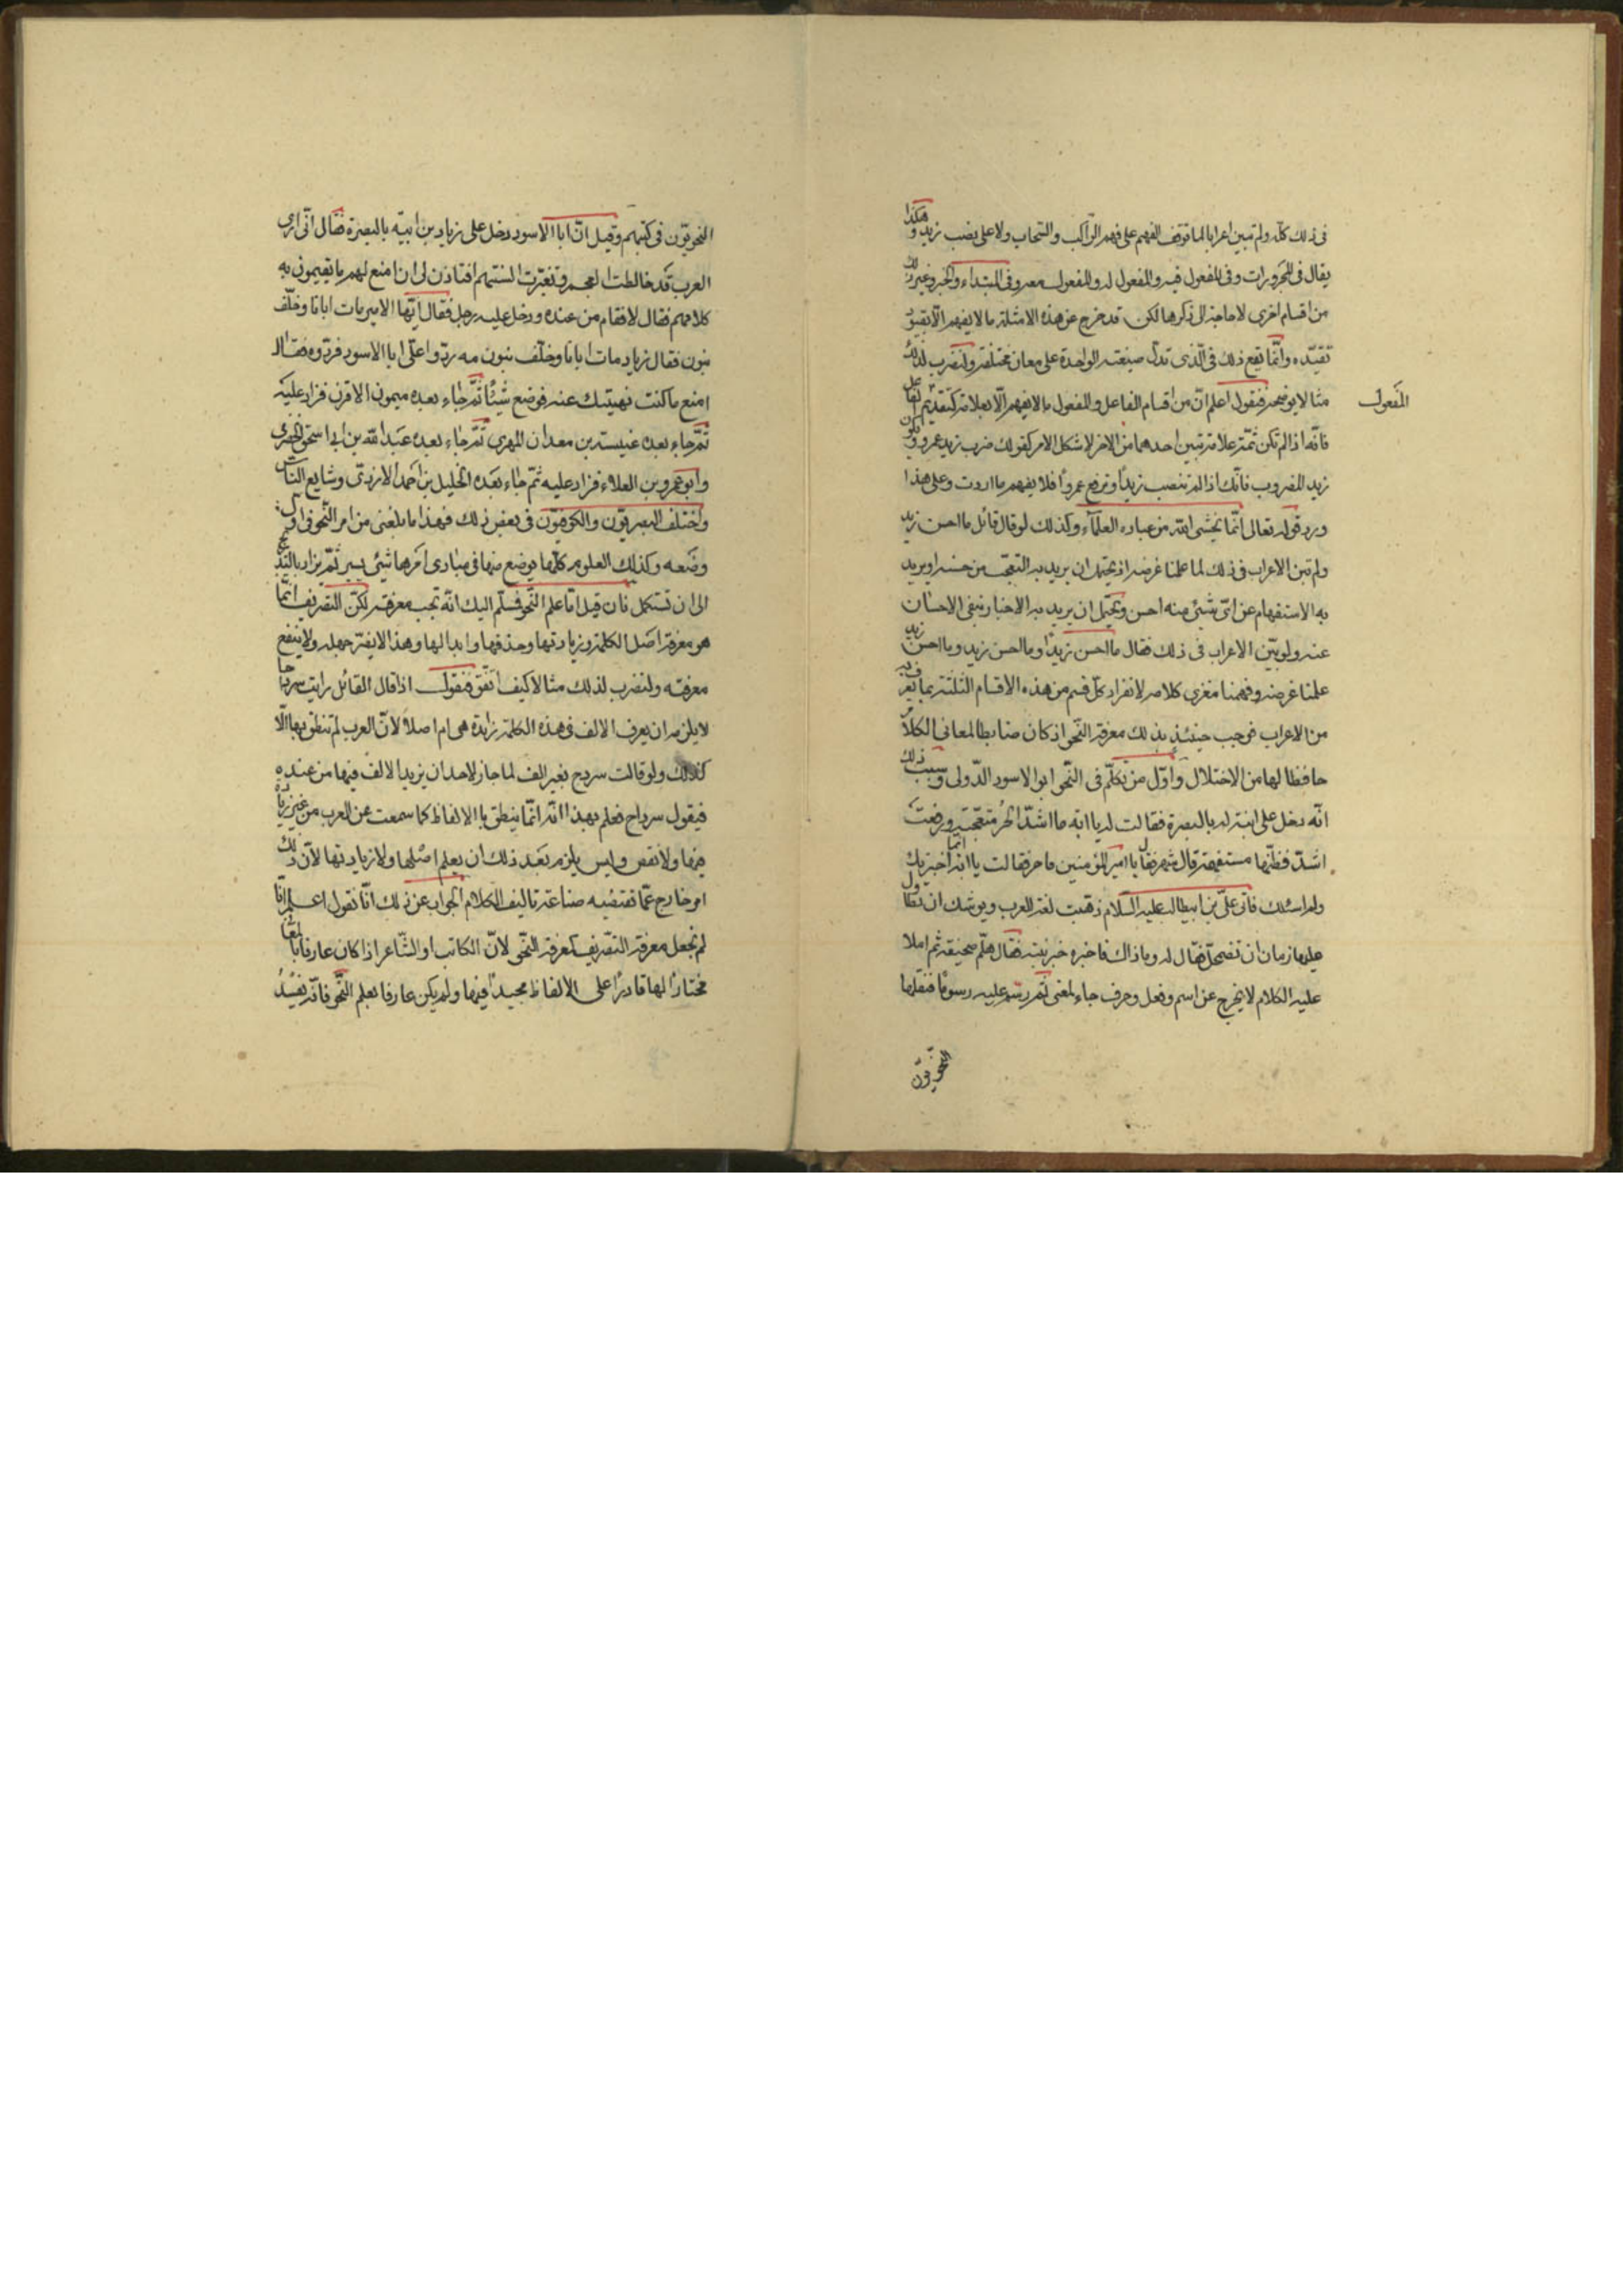 فى ذلك كله ولم تبين اعرابا لما توقف الفهم على فهم الراكب والسحاب ولا على نصب زيد وهكذا
يقال فى المجرورات وفى المفعول فيه والمفعول له والمفعول معه وفى المبتداء والخبر وغير ذلك
من اقسام اخرى لا حاجة الى ذكرها لكن قد خرج عن هذه الامثلة ما لا يفهم الا بقيود
تقيّده وانّما يقع ذلك فى الّذى تدلّ صيغته الواحدة على معان مختلفة ولنضرب لذلك
مثالا يوضحه فنقول اعلم انّ من اقسام الفاعل والمفعول ما لا يفهم الّا بعلامة كتقديم الفاعل على
المفعول
فانّه اذا لم تكن ثمّة علامة تبين احدهما من الاخر لاشكل الامر كقولك ضرب زيد عمرو ويكون
زيد المضروب فانّك اذا لم تنصب زيداً وترفع عمرواً فلا يفهم ما اردت وعلى هذا
ورد قوله تعالى انّما يخشى الله من عباده العلمآء وكذلك لو قال قائل ما احسن زيد
ولم تبن الاعراب فى ذلك لما علمنا غرضه اذ يحتمل ان يريد به التعجّب من حسنه او يريد
به الاستفهام عن اىّ شىء منه احسن ويحتمل ان يريد به الاخبار بنفى الاحسان
عنه ولو بيّن الاعراب فى ذلك فقال ما احسن زيداً وما احسن زيد وما احسن زيد
علمنا غرضه وفهمنا مغزى كلامه لانفراد كلّ قسم من هذه الاقسام الثلثة بما يعرف به
من الاعراب فوجب حينئذ بذلك معرفة النّحو اذ كان ضابطا لمعانى الكلام
حافظا لها من الاختلال واوّل من تكلّم فى النّحو ابو الاسود الدّولى وسبب ذلك
انّه دخل على ابنة له بالبصرة فقالت له يا ابه ما اشدّ الحرّ متعجّبة ورفعت
اشدّ فظنّها مستفهمة فقال شهر ناجر فقالت يا ابه انما اخبرتك
ولم اسئلك فاتى علىّ بن ابيطالب عليه السّلام فقال يا امير المؤمنين ذهبت لغة العرب ويوشك ان تطاول
عليها زمان ان تضمحلّ فقال له وما ذاك فاخبره خبر ابنته فقال هلّم صحيفة ثم املا
عليه الكلام لا يخرج عن اسم وفعل وحرف جاء لمعنى ثمّ رسم عليه رسومًا فنقلها
النّحويّون
النحويّون فى كتبهم وقيل انّ ابا الاسود دخل على زياد بن ابيّه بالبصرة فقال انّى ارى
العرب قد خالطت العجم وتغيّرت السنتهم افتاذن لى ان اصنع لهم ما يقيمون به
كلامهم فقال لا فقام من عنده ودخل عليه رجل فقال ايّها الامير مات ابانا وخلّف
بنون فقال زياد مات ابانا وخلّف بنون مه ردّوا علىّ ابا الاسود فردّوه فقال
اصنع ما كنت نهيتك عنه فوضع شيئًا ثمّ جاء بعده ميمون الاقرن فزاد عليه
ثمّ جاء بعده عنبسة بن معدان المهرى ثمّ جاء بعده عبد الله بن ابى اسحق الحضرمى
وابو عمرو بن العلاء فزاد عليه ثمّ جاء بعده الخليل بن احمد الازدىّ وشايع الناس
واختلف البصريّون والكوفيّون فى بعض ذلك فهذا ما بلغنى من امر النّحو فى اوّل
وضعه وكذلك العلوم كلّها يوضع منها فى مبادى امرها شىء يسير ثمّ يزاد بالتدريج
الى ان تستكمل فان قيل امّا علم النّحو فسلّم اليك انّه تجب معرفته لكنّ التصريف انّما
هو معرفة اصل الكلمة وزيادتها وحذفها وابدالها وهذا لا يضرّ جهله ولا ينفع
معرفته ولنضرب لذلك مثالا كيف اتفق فنقول اذا قال القائل رايت سرداحا
لا يلزمه ان يعرف الالف فى هذه الكلمة زايدة هى ام اصلا لانّ العرب لم تنطق بها الّا
كذلك ولو قالت سردح بغير الف لما جاز لاحد ان يزيد الالف فيها من عنده
فيقول سرداح فعلم بهذا انّه انّما ينطق بالالفاظ كما سمعت عن العرب من غير زيادة
فيها ولا نقص وليس يلزم بعد ذلك ان يعلم اصلها ولا زيادتها لانّ ذلك
امر خارج عمّا تقتضيه صناعة تاليف الكلام الجواب عن ذلك انّا نقول اعلم انّا
لم نجعل معرفة التصريف كمعرفة النّحو لانّ الكاتب او الشّاعر اذا كان عارفا بالمعانى
مختارًا لها قادرًا على الالفاظ مجيدًا فيها ولم يكن عارفا بعلم النّحو فانّه يفسد